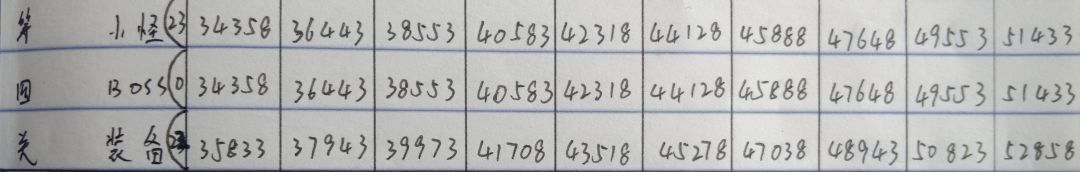 第 小怪(23) 34358 36443 38553 40583 42318 44128 45888 47648 49553 51433
四 Boss(0) 34358 36443 38553 40583 42318 44128 45888 47648 49553 51433
关 装备 35833 37943 39973 41708 43518 45278 47038 48943 50823 52858